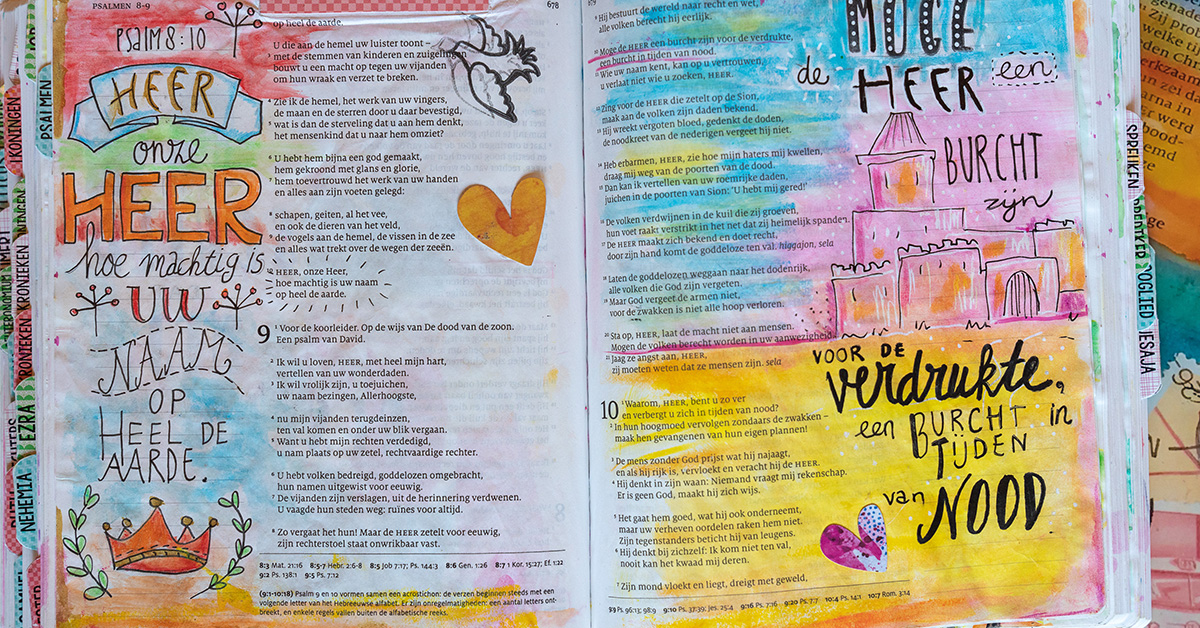 PSALMEN 8-9
678
PSalm 8:10
HEER
onze
HEER
hoe machtig is
UW
NAAM
OP
HEEL DE
AARDE.
op heel de aarde.
U die aan de hemel uw luister toont –
³ met de stemmen van kinderen en zuigelingen
bouwt u een macht op tegen uw vijanden
om hun wraak en verzet te breken.
⁴ Zie ik de hemel, het werk van uw vingers,
de maan en de sterren door u daar bevestigd,
⁵ wat is dan de sterveling dat u aan hem denkt,
het mensenkind dat u naar hem omziet?
⁶ U hebt hem bijna een god gemaakt,
hem gekroond met glans en glorie,
⁷ hem toevertrouwd het werk van uw handen
en alles aan zijn voeten gelegd:
⁸ schapen, geiten, al het vee,
en ook de dieren van het veld,
⁹ de vogels aan de hemel, de vissen in de zee
en alles wat trekt over de wegen der zeeën.
¹⁰ HEER, onze Heer,
hoe machtig is uw naam
op heel de aarde.
9 ¹ Voor de koorleider. Op de wijs van De dood van de zoon.
Een psalm van David.
² Ik wil u loven, HEER, met heel mijn hart,
vertellen van uw wonderdaden.
³ Ik wil vrolijk zijn, u toejuichen,
uw naam bezingen, Allerhoogste,
⁴ nu mijn vijanden terugdeinzen,
ten val komen en onder uw blik vergaan.
⁵ Want u hebt mijn rechten verdedigd,
u nam plaats op uw zetel, rechtvaardige rechter.
⁶ U hebt volken bedreigd, goddelozen omgebracht,
hun namen uitgewist voor eeuwig.
⁷ De vijanden zijn verslagen, uit de herinnering verdwenen.
U vaagde hun steden weg: ruïnes voor altijd.
⁸ Zo vergaat het hun! Maar de HEER zetelt voor eeuwig,
zijn rechterstoel staat onwrikbaar vast.
8:3 Mat. 21:16 8:5-7 Hebr. 2:6-8 8:5 Job 7:17; Ps. 144:3 8:6 Gen. 1:26 8:7 1 Kor. 15:27; Ef. 1:22
9:2 Ps. 138:1 9:5 Ps. 7:12
(9:1-10:18) Psalm 9 en 10 vormen samen een acrostichon: de verzen beginnen steeds met een
volgende letter van het Hebreeuwse alfabet. Er zijn onregelmatigheden: een aantal letters ont-
breekt, en enkele regels vallen buiten de alfabetische reeks.
⁹ Hij bestuurt de wereld naar recht en wet,
alle volken berecht hij eerlijk.
¹⁰ Moge de HEER een burcht zijn voor de verdrukte,
een burcht in tijden van nood.
¹¹ Wie uw naam kent, kan op u vertrouwen,
u verlaat niet wie u zoeken, HEER.
¹² Zing voor de HEER die zetelt op de Sion,
maak aan de volken zijn daden bekend.
¹³ Hij wreekt vergoten bloed, gedenkt de doden,
de noodkreet van de nederigen vergeet hij niet.
¹⁴ Heb erbarmen, HEER, zie hoe mijn haters mij kwellen,
draag mij weg van de poorten van de dood.
¹⁵ Dan kan ik vertellen van uw roemrijke daden,
juichen in de poorten van Sion: 'U hebt mij gered!'
¹⁶ De volken verdwijnen in de kuil die zij groeven,
hun voet raakt verstrikt in het net dat zij heimelijk spanden.
¹⁷ De HEER maakt zich bekend en doet recht,
door zijn hand komt de goddeloze ten val. higgajon, sela
¹⁸ Laten de goddelozen weggaan naar het dodenrijk,
alle volken die God zijn vergeten.
¹⁹ Maar God vergeet de armen niet,
voor de zwakken is niet alle hoop verloren.
²⁰ Sta op, HEER, laat de macht niet aan mensen.
Mogen de volken berecht worden in uw aanwezigheid.
²¹ Jaag ze angst aan, HEER,
zij moeten weten dat ze mensen zijn. sela
10 ¹ Waarom, HEER, bent u zo ver
en verbergt u zich in tijden van nood?
² In hun hoogmoed vervolgen zondaars de zwakken –
maak hen gevangenen van hun eigen plannen!
³ De mens zonder God prijst wat hij najaagt,
en als hij rijk is, vervloekt en veracht hij de HEER.
⁴ Hij denkt in zijn waan: Niemand vraagt mij rekenschap.
Er is geen God, maakt hij zich wijs.
⁵ Het gaat hem goed, wat hij ook onderneemt,
maar uw verheven oordelen raken hem niet.
Zijn tegenstanders beticht hij van leugens.
⁶ Hij denkt bij zichzelf: Ik kom niet ten val,
nooit kan het kwaad mij deren.
⁷ Zijn mond vloekt en liegt, dreigt met geweld,
9:9 Ps. 96:13; 98:9 9:10 Ps. 37:39; Jes. 25:4 9:16 Ps. 7:16 9:20 Ps. 7:7 10:4 Ps. 14:1 10:7 Rom. 3:14
MOGE
de HEER een
BURCHT
zijn
VOOR DE
verdrukte,
een BURCHT in
TIJDEN
van NOOD
PSALMEN
KONINGEN
KRONIEKEN
EZRA
NEHEMIA
SPREUKEN
PREDIKER
HOOGLIED
JESAJA